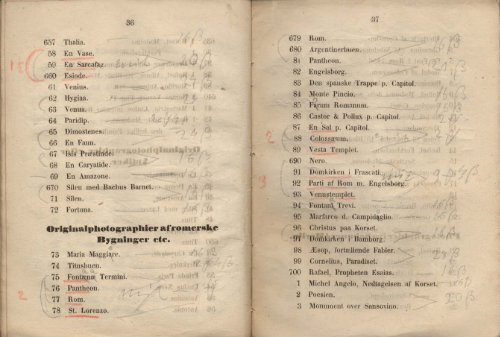 36
657 Thalia.
58 En Vase.
59 En Sarcofag.
660 Esiode.
61 Venius.
62 Hygiæa.
63 Venus.
64
65 Dimostenes.
66 En Faun.
67 Isis Præstinde.
68 En Caryatide.
69 En Amazone.
670 Silen med Bachus Barnet.
71 Silen.
72 Fortuna.
Originalphotographier af romerske
Bygninger etc.
73 Maria Maggiare.
74 Titusbuen.
75 Fontana Termini.
76 Pantheon.
77 Rom.
78 St. Lorenzo.
2
37
679 Rom.
680 Argentinertaaen.
81 Pantheon.
82 Engelsborg.
83 Den spanske Trappe p. Capitol.
84 Monte Pincio.
85 Forum Romanum.
86 Castor & Pollux p. Capitol.
87 En Sal p. Capitol.
88 Colossæum.
89 Vesta Templet.
690 Nero.
91 Domkirken i Frascati.
92 Parti af Rom m. Engelsborg.
93 Venustemplet.
94 Fontana Trevi.
95 Marfareo d. Campidaglio.
96 Christus paa Korset.
97 Domkirken i Bamborg.
98 Æsop, fortællende Fabler.
99 Cornelius, Paradiset.
700 Rafael, Propheten Esaias.
1 Michel Angelo, Nedtagelsen af Korset.
2 Poesien.
3 Monument over Sansovino.
2
3